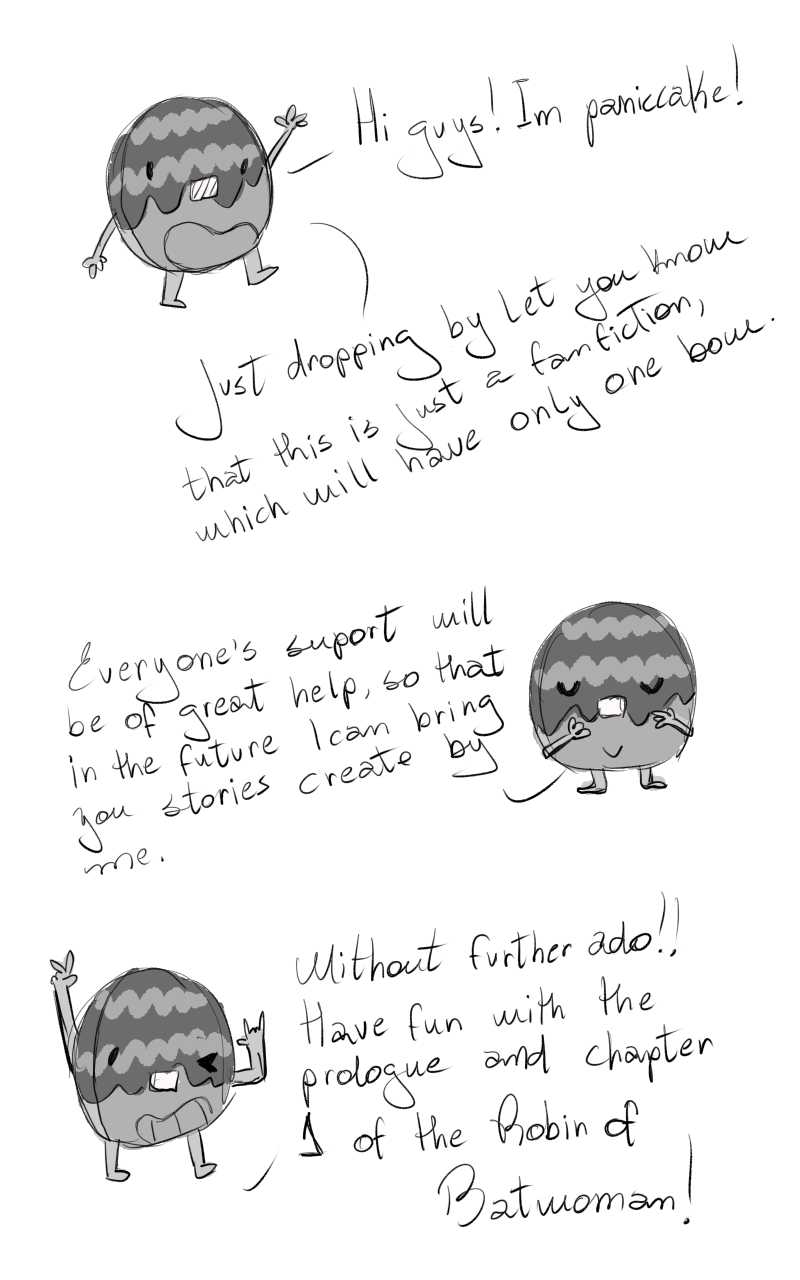 Hi guys! Im paniccake!
Just dropping by let you know
that this is just a fanfiction,
which will have only one bow.
Everyone's suport will
be of great help, so that
in the future I can bring
you stories create by
me.
Without further ado!!
Have fun with the
prologue and chapter
1 of the Robin of
Batwoman!